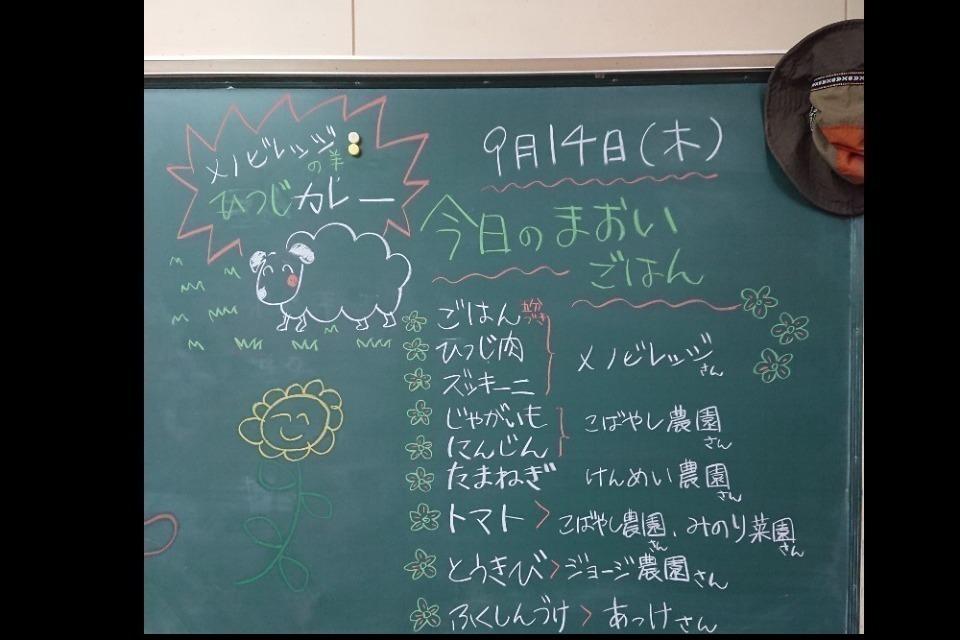 メノビレッジ
の羊
ひつじカレー
9月14日(木)
今日のまおい
ごはん
ごはん 五分づき
ひつじ肉
ズッキーニ
メノビレッジさん
じゃがいも
にんじん
こばやし農園さん
たまねぎ けんめい農園さん
トマト > こばやし農園さん、みのり菜園さん
とうきび > ジョージ農園さん
ふくしんづけ > あっけさん